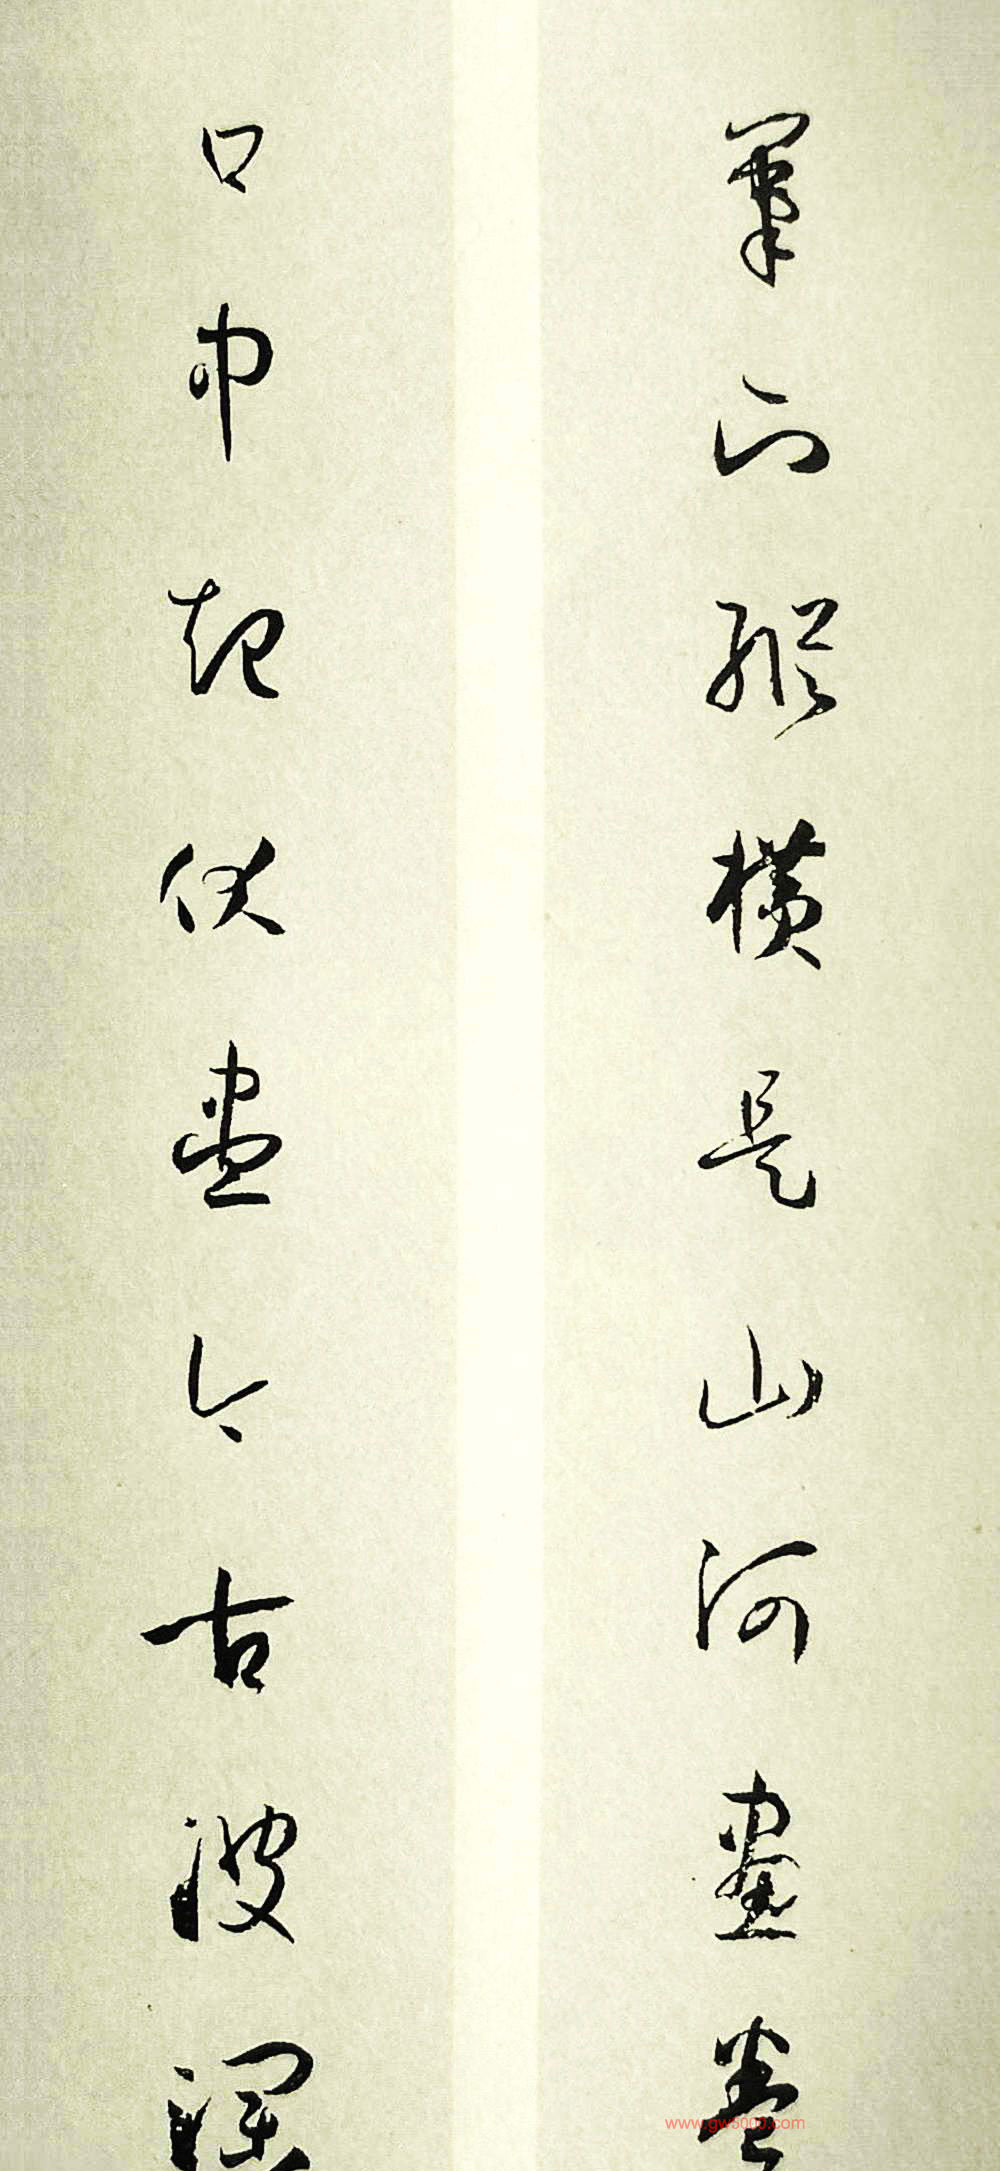 筆下縱橫是山河畫卷
口中起伏盡今古波瀾
www.gw5000.com